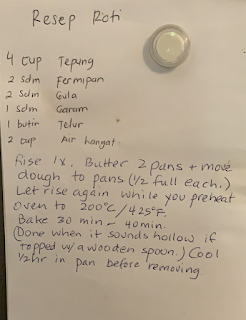 Resep Roti
4 cup Tepung
2 sdm Fermipan
2 sdm Gula
1 sdm Garam
1 butir Telur
2 cup Air hangat
Rise 1x. Butter 2 pans + move
dough to pans (1/2 full each.)
Let rise again while you preheat
oven to 200°C/425°F.
Bake 30 min - 40min.
(Done when it sounds hollow if
topped w/a wooden spoon.) Cool
1/2hr in pan before removing